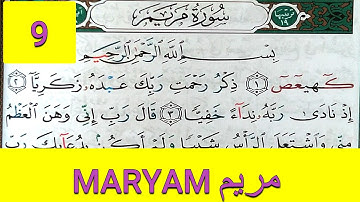 9
سُورَةُ مَرْيَمَ
بِسْمِ اللَّهِ الرَّحْمَٰنِ الرَّحِيمِ
كٓهيعٓصٓ ١ ذِكْرُ رَحْمَتِ رَبِّكَ عَبْدَهُۥ زَكَرِيَّآ ٢
إِذْ نَادَىٰ رَبَّهُۥ نِدَآءً خَفِيًّا ٣ قَالَ رَبِّ إِنِّى وَهَنَ الْعَظْمُ
مِنِّى وَاشْتَعَلَ الرَّأْسُ شَيْبًا وَلَمْ أَكُنۢ بِدُعَآئِكَ رَبِّ
MARYAM مريم